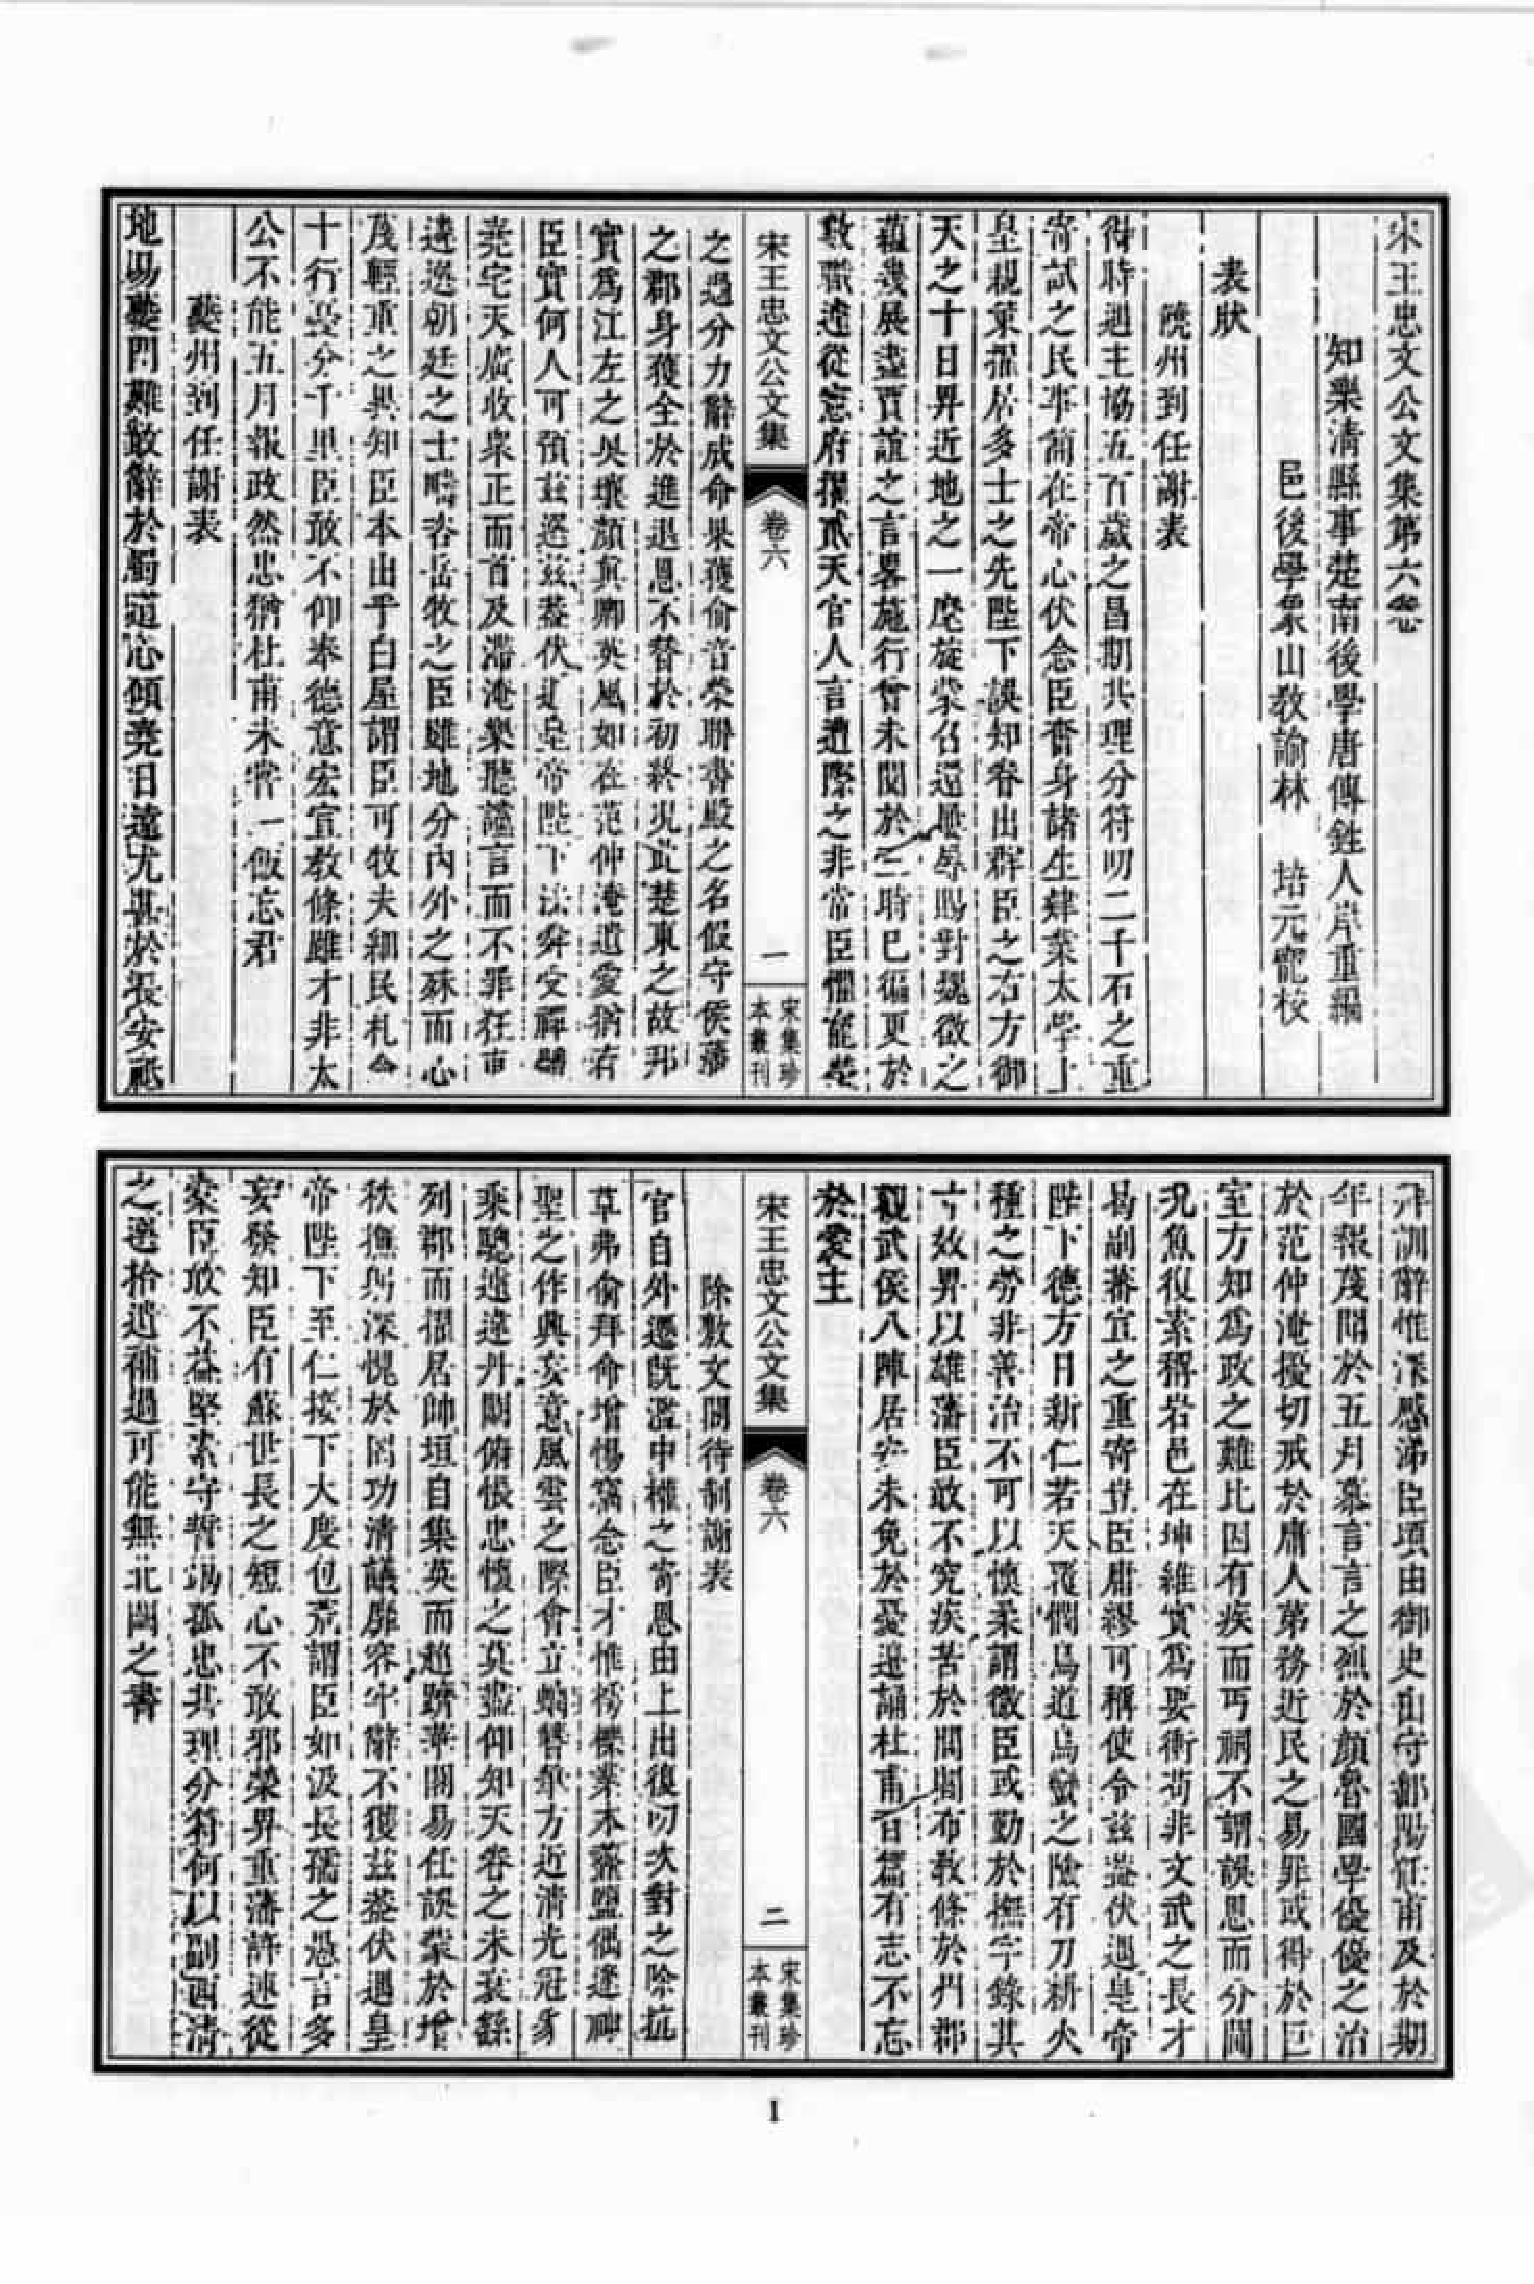 宋王忠文公文集第六卷
知樂清縣事楚南後學唐傳鉎人岸重編
邑後學象山教諭林　培元寵校
表狀
饒州到任謝表
得時遇主協五百歲之昌期共理分符叨二千石之重
寄試之民事簡在帝心伏念臣奮身諸生肄業太學上
皇親策擢居多士之先陛下誤知眷出群臣之右方御
天之十日畀近地之一麾旋蒙召還屢辱賜對魏徵之
蘊幾展盡賈誼之言畧施行曾未閱於三時已徧更於
數職遽從憲府擢貳天官人言遭際之非常臣懼寵榮
之過分力辭成命果獲俞音榮聯書殿之名假守侯藩
之郡身獲全於進退恩不替於初終况此楚東之故邦
實爲江左之奧壤顏真卿英風如在范仲淹遺愛猶存
臣實何人可預茲選茲蓋伏遇皇帝陛下法舜受禪體
堯宅天廣收衆正而首及滯淹樂聽讜言而不罪狂直
遴選朝廷之士疇咨岳牧之臣雖地分內外之殊而心
茂輕重之異知臣本出乎白屋謂臣可牧夫細民札令
十行憂分千里臣敢不仰奉德意宏宣教條雖才非太
公不能五月報政然忠猶杜甫未嘗一飯忘君
夔州到任謝表
地易夔門難敢辭於蜀道心傾堯日遠尤甚於長安祗
膺訓辭惟深感涕臣頃由御史出守鄱陽仕甫及於期
年報茂聞於五月慕言言之烈於顏魯國學優優之治
於范仲淹擾切戒於庸人第務近民之易罪或得於巨
室方知爲政之難比因有疾而丐祠不謂誤恩而分閫
况魚復素稱岩邑在坤維實爲要衝苟非文武之長才
曷副蕃宣之重寄豈臣庸繆可稱使令茲蓋伏遇皇帝
陛下德方日新仁若天覆憫鳥道烏蠻之險有刀耕火
種之勞非善治不可以懷柔謂微臣或勤於撫字錄其
寸效畀以雄藩臣敢不究疾苦於閭閻布教條於州郡
觀武侯八陣居安未免於憂邊誦杜甫百篇有志不忘
於愛主
除敷文閣待制謝表
官自外遷旣濫中權之寄恩由上出復叨次對之除抗
草弗俞拜命增惕竊念臣才惟樗櫟業本虀鹽偶逢神
聖之作興妄意風雲之際會立螭替筆方近淸光冠豸
乘驄遽違丹闕俯悵忠懷之莫盡仰知天眷之未衰繇
列郡而擢居帥垣自集英而趨躋華閣易任誤蒙於增
秩撫躬深愧於罔功清議靡容牢辭不獲茲蓋伏遇皇
帝陛下至仁接下大度包荒謂臣如汲長孺之過言多
妄發知臣有蘇世長之短心不敢邪榮畀重藩許速從
橐臣敢不益堅素守誓竭孤忠共理分符何以副西清
之選拾遺補過可能無北闕之書
宋王忠文公文集
卷六
一
宋集珍本叢刊
宋王忠文公文集
卷六
二
宋集珍本叢刊
1